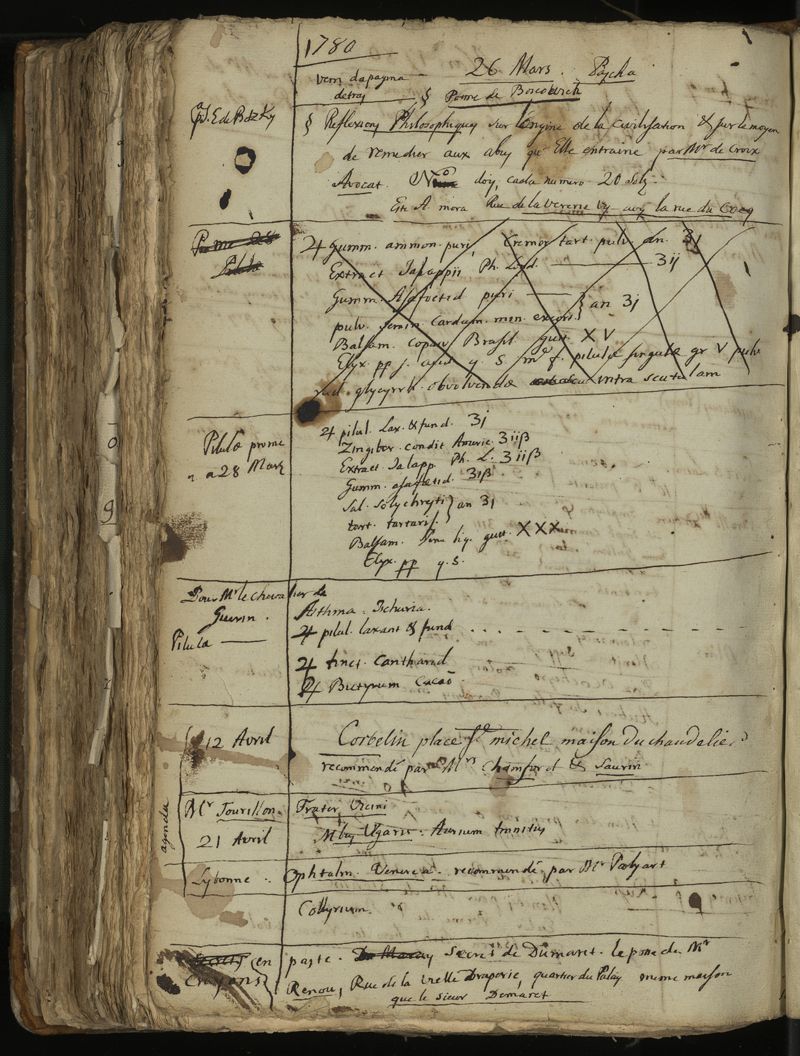 1780
26 Mars. Pascha
detray § Poeme de Boscovich
§ Reflexions Philosophiques sur l'origine de la Civilisation & sur le moyen
de remedier aux abus qu'Elle entraine par Mr de Croix
Avocat. No doy, caola numero 20 Sols
Este A. mora Rue de la Vererie vis avis la rue du Coq
♃ Gumm. ammon. puri, Cremor tart. pulv. an. ʒj
Extract Jalappii Ph. Lond. ʒij
Gumm. Asafoetid puri } an ʒj
pulv. semin Cardam. min. excort.
Balsam. Copaiv Brasil gutt. XV
Elyx. pp q. S. f. pilulae singulae gr V pulv
rad. glycyrrh. obvolvendae intra scutulam
Pilulae pro me
a 28 Mars
♃ pilul. Lax. & fund. ʒj
Zingiber. condit Americ. ʒiiß
Extract. Jalapp. Ph. L. ʒiiß
Gumm. asafoetid. ʒiß
Sal. polychresti } an ʒj
tart. tartaris.
Balsam. liq. gutt. XXX
Elyx. pp q. S.
Pour Mr le Chevalier de
Guerin.
Asthma. Ischuria.
Pilula
♃ pilul. laxant & fund
♃ tinct. Cantharid
♃ Butyrum Cacao
12 Avril
Corbelin place St michel maison du chandelier
recommendé par Mrs Chamfort & Saurin
agenda
Mr Tourillon. Frater Vicini
21 Avril Aurium tinnitus
Lybonne. Ophtalm. Venerea. recommendé par Mr Palyart
Collyrium.
Secrets en paste. Secret de Dumaret. le pose du Mr
Crayons { Renou, Rue de la Vielle Draperie, quartier du Palay meme maison
que le sieur Demaret